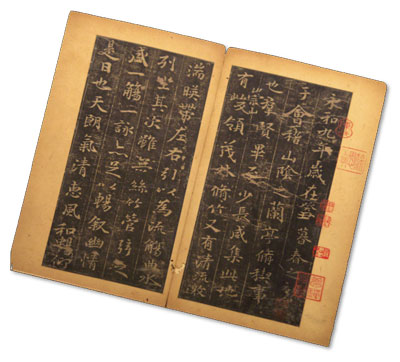 永和九年歲在癸丑暮春之初
于會稽山陰之蘭亭脩稧事
也羣賢畢至少長咸集此地
有崇山峻領茂林脩竹又有清流激
湍暎帶左右引以為流觴曲水
列坐其次雖無絲竹管弦之
盛一觴一詠亦足以暢敘幽情
是日也天朗氣清惠風和暢仰